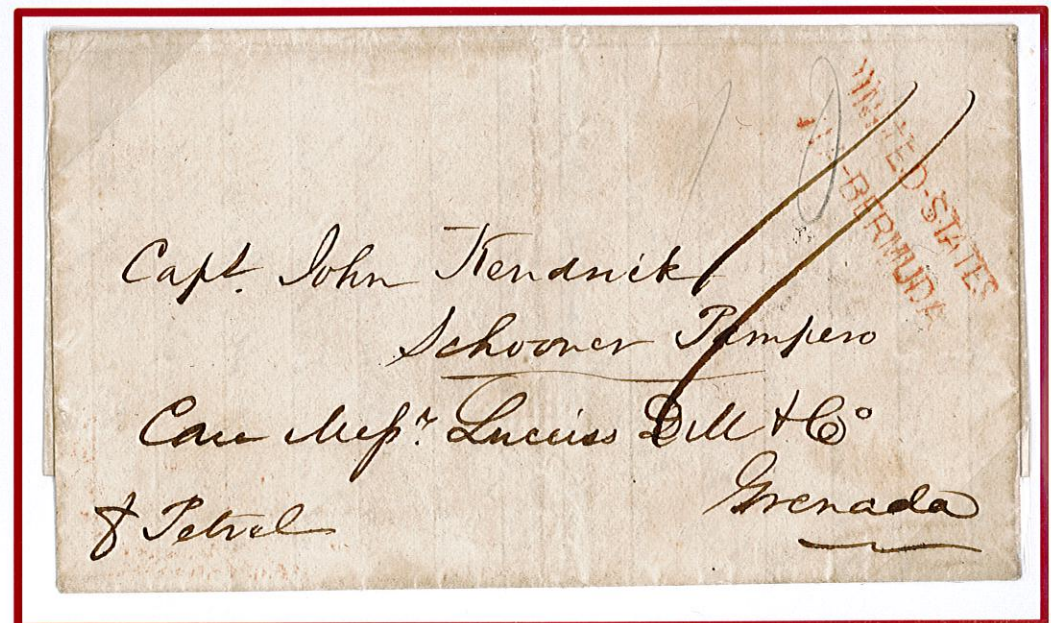 UNITED-STATES
VIA-BERMUDA
Capt. John Kendrick
Schooner Pampero
Care Messrs. & Co
Grenada
Petrel